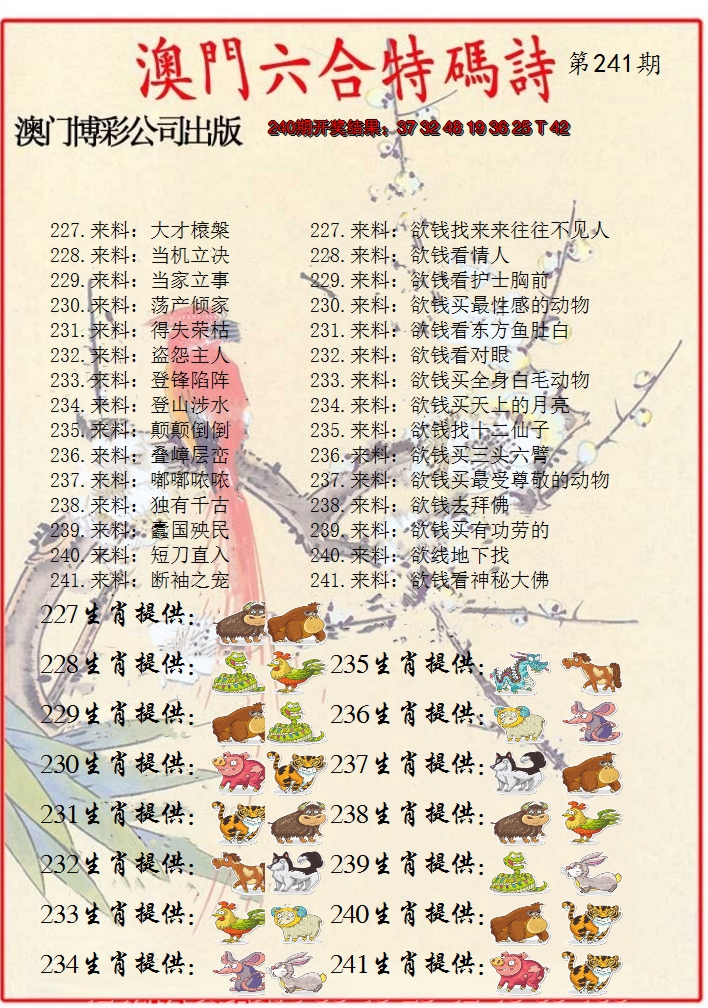 澳門六合特碼詩 第241期
澳门博彩公司出版 240期开奖结果：37 32 48 19 36 25 T 42
227.来料：大才榱槃 227.来料：欲钱找来来往往不见人
228.来料：当机立决 228.来料：欲钱看情人
229.来料：当家立事 229.来料：欲钱看护士胸前
230.来料：荡产倾家 230.来料：欲钱买最性感的动物
231.来料：得失荣枯 231.来料：欲钱看东方鱼肚白
232.来料：盗怨主人 232.来料：欲钱看对眼
233.来料：登锋陷阵 233.来料：欲钱买全身白毛动物
234.来料：登山涉水 234.来料：欲钱买天上的月亮
235.来料：颠颠倒倒 235.来料：欲钱找十二仙子
236.来料：叠嶂层峦 236.来料：欲钱买三头六臂
237.来料：嘟嘟哝哝 237.来料：欲钱买最受尊敬的动物
238.来料：独有千古 238.来料：欲钱去拜佛
239.来料：蠹国殃民 239.来料：欲钱买有功劳的
240.来料：短刀直入 240.来料：欲线地下找
241.来料：断袖之宠 241.来料：欲钱看神秘大佛
227生肖提供：
228生肖提供： 235生肖提供：
229生肖提供： 236生肖提供：
230生肖提供： 237生肖提供：
231生肖提供： 238生肖提供：
232生肖提供： 239生肖提供：
233生肖提供： 240生肖提供：
234生肖提供： 241生肖提供：